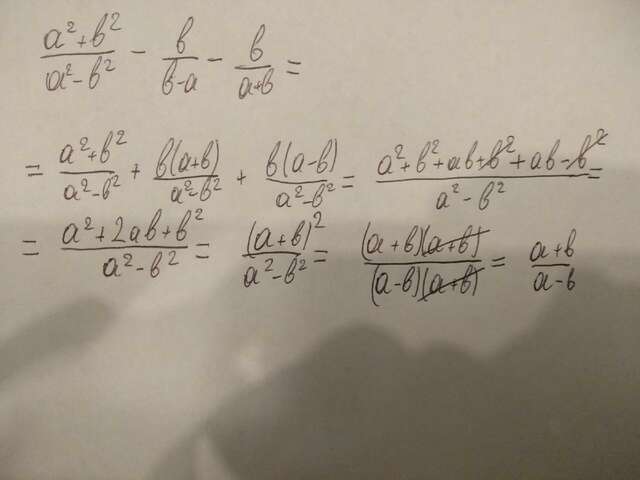 a²+b²/a²-b² - b/b-a - b/a+b =
= a²+b²/a²-b² + b(a+b)/a²-b² + b(a-b)/a²-b² = a²+b²+ab+b²+ab-b²/a²-b² =
= a²+2ab+b²/a²-b² = (a+b)²/a²-b² = (a+b)(a+b)/(a-b)(a+b) = a+b/a-b